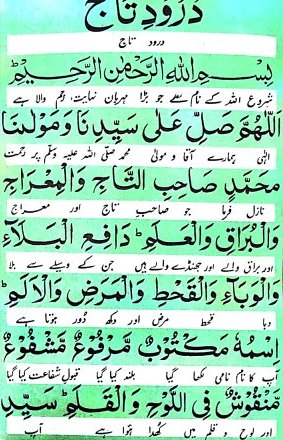 درود تاج
درود تاج
بِسْمِ اللهِ الرَّحْمٰنِ الرَّحِيْمِ
شروع اللہ کے نام سے جو بڑا مہربان نہایت رحم والا ہے
اَللّٰهُمَّ صَلِّ عَلٰى سَيِّدِنَا وَمَوْلٰنَا
الٰہی ہمارے آقا و مولیٰ محمد صلی اللہ علیہ وسلم پر رحمت
مُحَمَّدٍ صَاحِبِ التَّاجِ وَالْمِعْرَاجِ
نازل فرما جو صاحب تاج اور معراج
وَالْبُرَاقِ وَالْعَلَمِ ؕ دَافِعِ الْبَلَآءِ
اور براق والے اور جھنڈے والے ہیں جن کے وسیلے سے بلا
وَالْوَبَآءِ وَالْقَحْطِ وَالْمَرَضِ وَالْاَلَمِ ؕ
وبا قحط مرض اور دکھ دور ہوتا ہے
اِسْمُهٗ مَكْتُوْبٌ مَّرْفُوْعٌ مَّشْفُوْعٌ
آپ کا نام نامی لکھا گیا بلند کیا گیا قبول شفاعت کیا گیا
مَّنْقُوْشٌ فِي اللَّوْحِ وَالْقَلَمِ ؕ سَيِّدِ
اور لوح و قلم میں کھدا ہوا ہے آپ